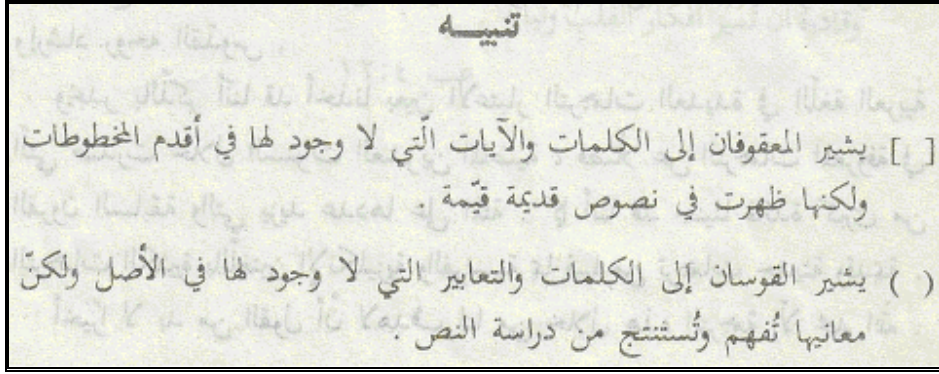 تنبيـــه
[ ] يشير المعقوفان إلى الكلمات والآيات الّتي لا وجود لها في أقدم المخطوطات
ولكنها ظهرت في نصوص قديمة قيّمة
( ) يشير القوسان إلى الكلمات والتعابير التي لا وجود لها في الأصل ولكنّ
معانيها تُفهم وتُستنتج من دراسة النص .